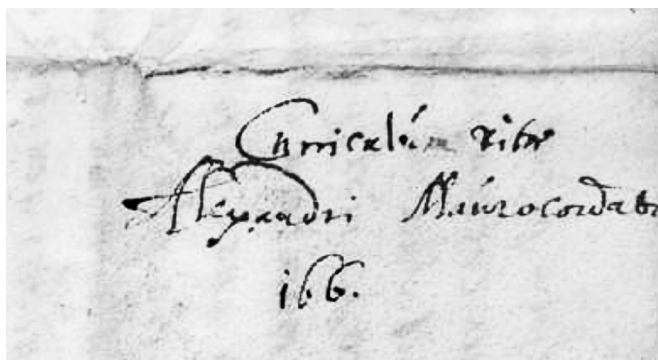 Curriculum vitæ
Alexandri Maurocordato
166.